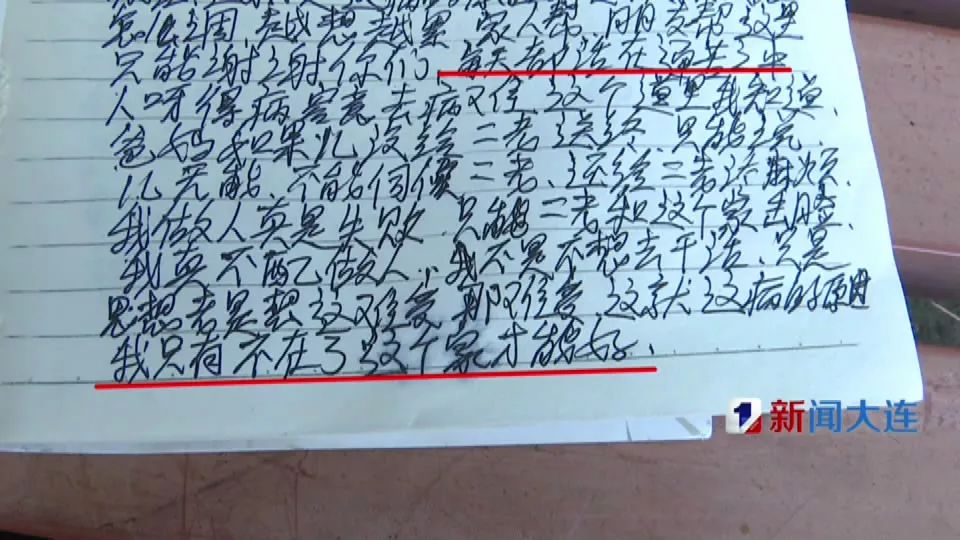 怎么回, 越想越累 家人帮, 朋友帮 这里
只能谢谢你们, 每天都活在痛苦之中
人呀得病容易去病难, 这个道理我知道、
爸妈如果儿没给二老送终, 只能说、
儿无能、不能伺候二老、还给二老添麻烦、
我做人真是失败 只能 二老和这个家
我真不配做人, 我不是不想去干活、只是
思想老是想这难受 那难受, 这就这病的原因
我只有不在了这个家才能好、
1 新闻大连